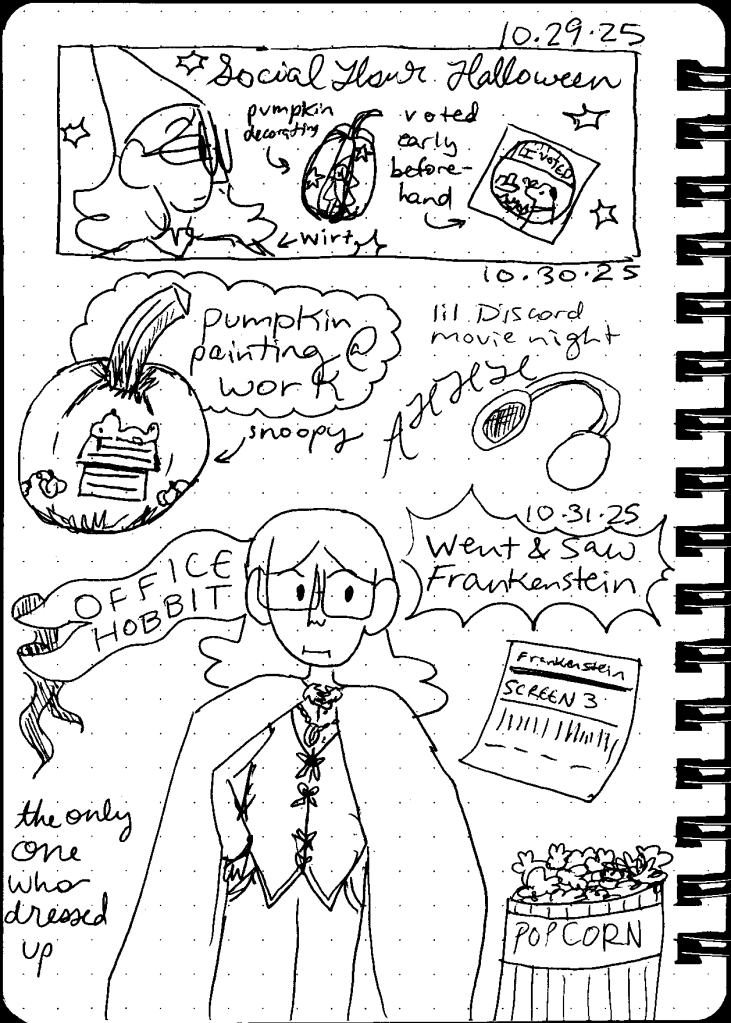 10.29.25
Social Hour Halloween
pumpkin
decorating
voted
early
before-
hand
I VOTED
wirt
10.30.25
pumpkin
painting @
work
snoopy
lil Discord
movie night
AHHHH
10.31.25
Went & Saw
Frankenstein
OFFICE
HOBBIT
Frankenstein
SCREEN 3
the only
one
who
dressed
up
POPCORN